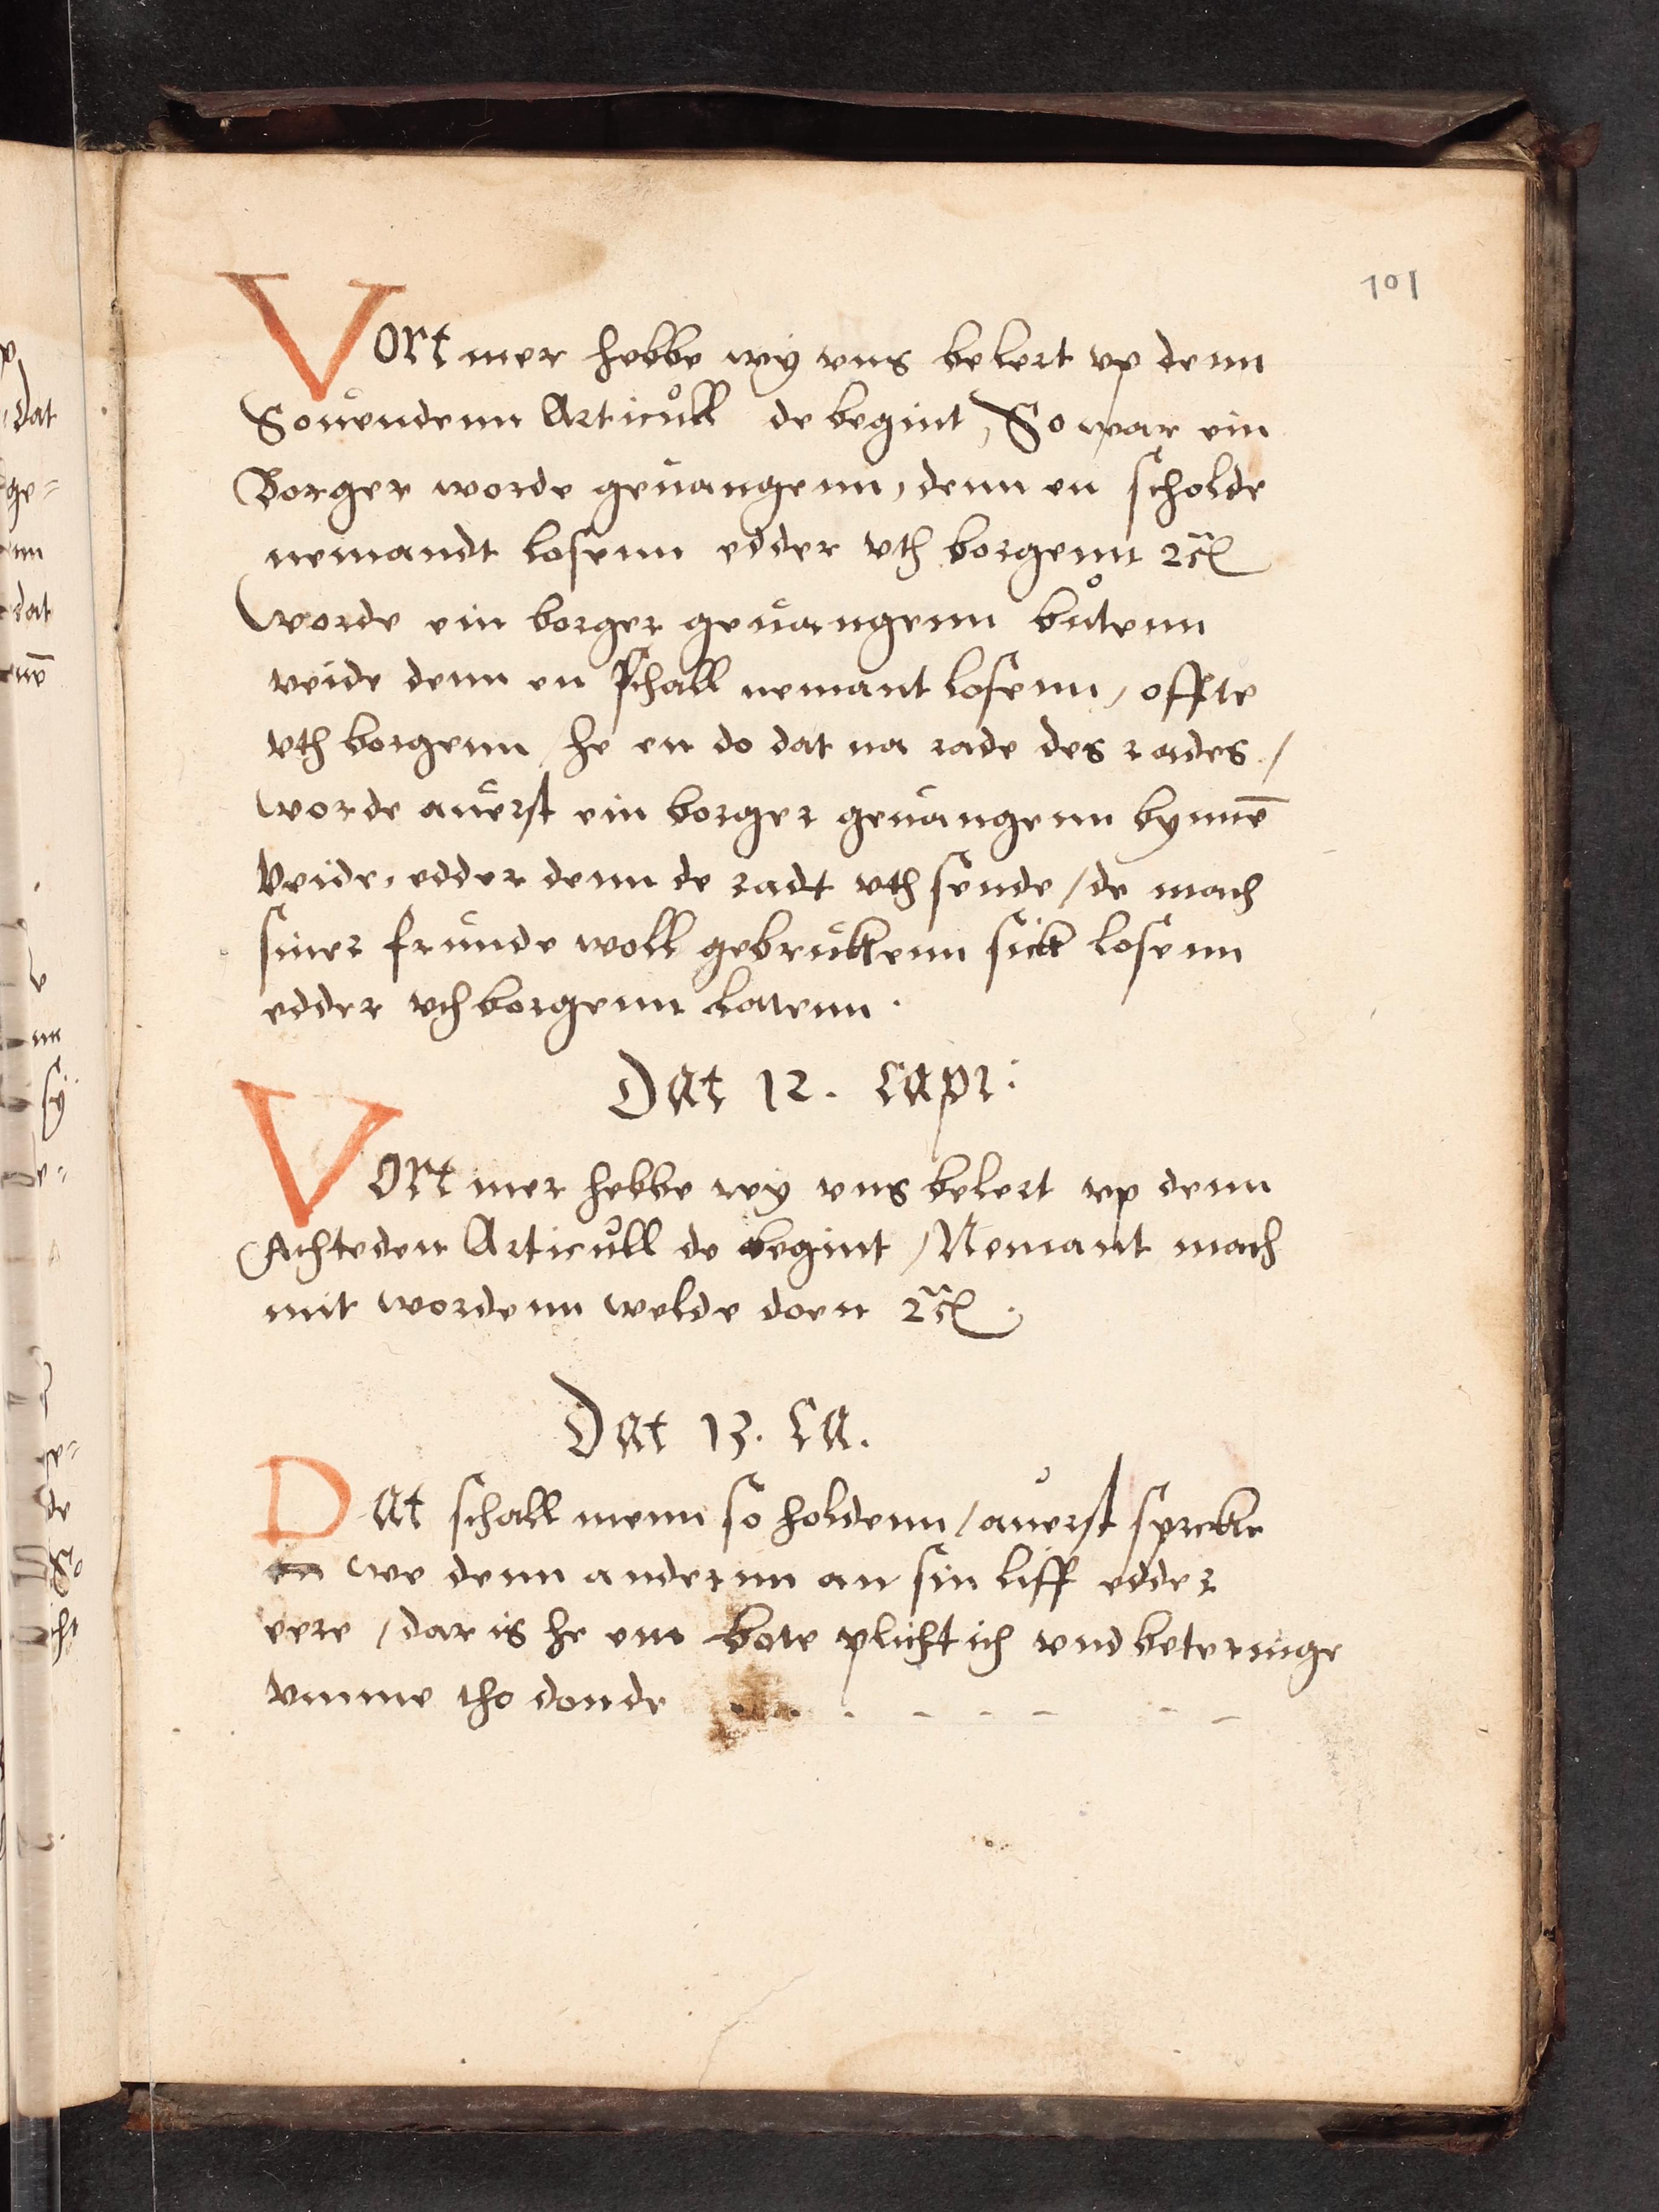 101
Vort mer hebbe wy vns belert vp denn
Souendenn Articůll de begint, So war ein
Borger worde geuangenn, denn en scholde
nemandt losenn edder vth borgenn ꝛc̃
worde ein borger geuangenn bůtenn
veide denn en schall nemant losenn / offte
vth borgenn / he en do dat na rade des rades /
worde auerst ein borger geuangenn bynnē
Veide, edder denn de radt vth sende / de mach
siner frunde woll gebrukenn sick losenn
edder vth borgenn latenn .
Dat 12. capi:
Vort mer hebbe wy vns belert vp denn
Achteden Articůll de begint / Nemant mach
mit wordenn welde doen ꝛc̃ .
Dat 13. ca.
Dat schall menn so holdenn / auerst spreke
en we denn andernn an sin liff edder
eere / dar is he em bote plichtich vnd beteringe
vmme tho donde . . . - - - - -
dat
ge=
dat
sy
e=
de
cht